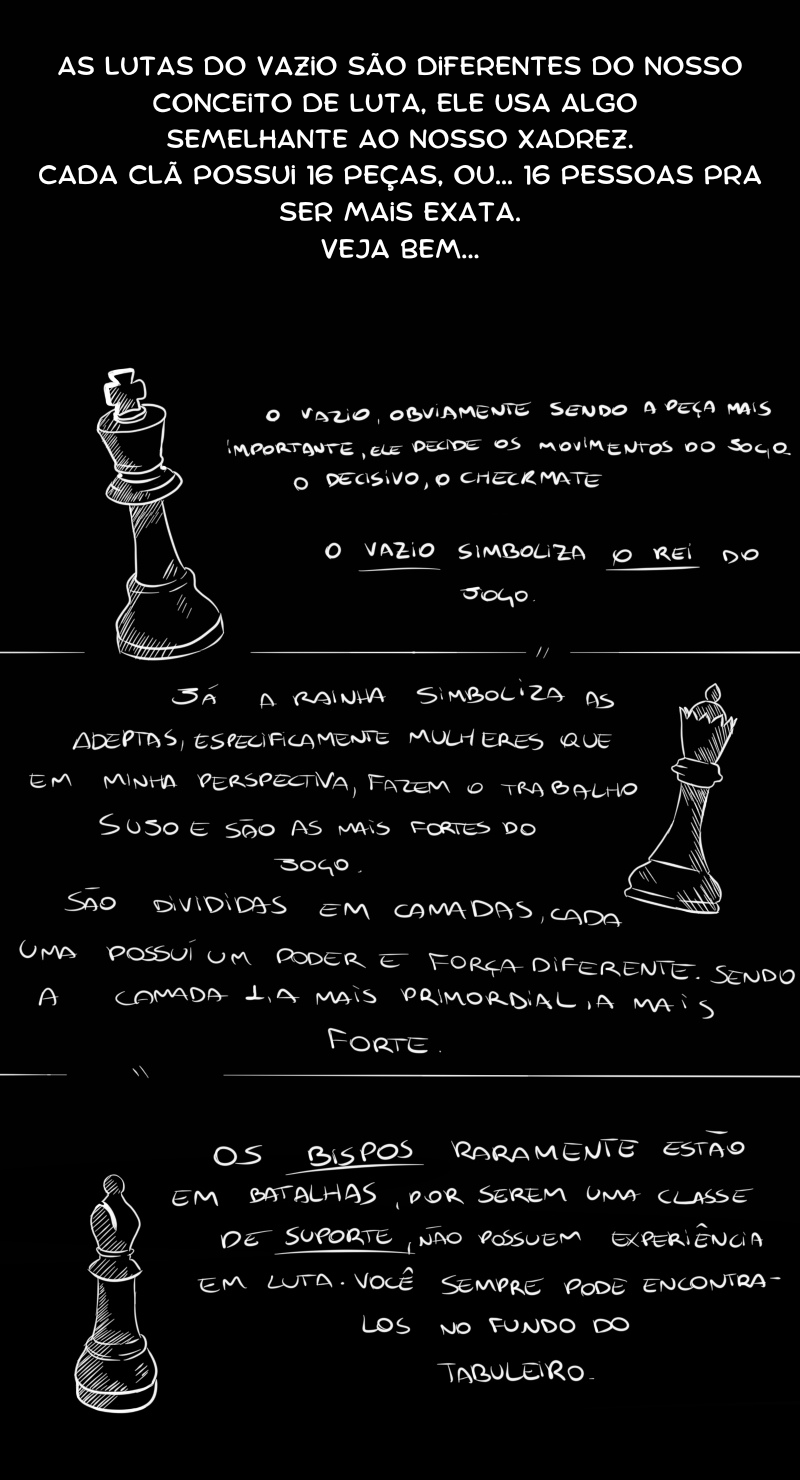 AS LUTAS DO VAZIO SÃO DIFERENTES DO NOSSO
CONCEITO DE LUTA, ELE USA ALGO
SEMELHANTE AO NOSSO XADREZ.
CADA CLÃ POSSUI 16 PEÇAS, OU... 16 PESSOAS PRA
SER MAIS EXATA.
VEJA BEM...
O VAZIO, OBVIAMENTE SENDO A PEÇA MAIS
IMPORTANTE, ELE DECIDE OS MOVIMENTOS DO JOGO.
O DECISIVO, O CHECKMATE
O VAZIO SIMBOLIZA O REI DO
JOGO.
JÁ A RAINHA SIMBOLIZA AS
ADEPTAS, ESPECIFICAMENTE MULHERES QUE
EM MINHA PERSPECTIVA, FAZEM O TRABALHO
SUJO E SÃO AS MAIS FORTES DO
JOGO.
SÃO DIVIDIDAS EM CAMADAS, CADA
UMA POSSUÍ UM PODER E FORÇA DIFERENTE. SENDO
A CAMADA 1, A MAIS PRIMORDIAL, A MAIS
FORTE.
OS BISPOS RARAMENTE ESTÃO
EM BATALHAS, POR SEREM UMA CLASSE
DE SUPORTE, NÃO POSSUEM EXPERIÊNCIA
EM LUTA. VOCÊ SEMPRE PODE ENCONTRA-
LOS NO FUNDO DO
TABULEIRO.